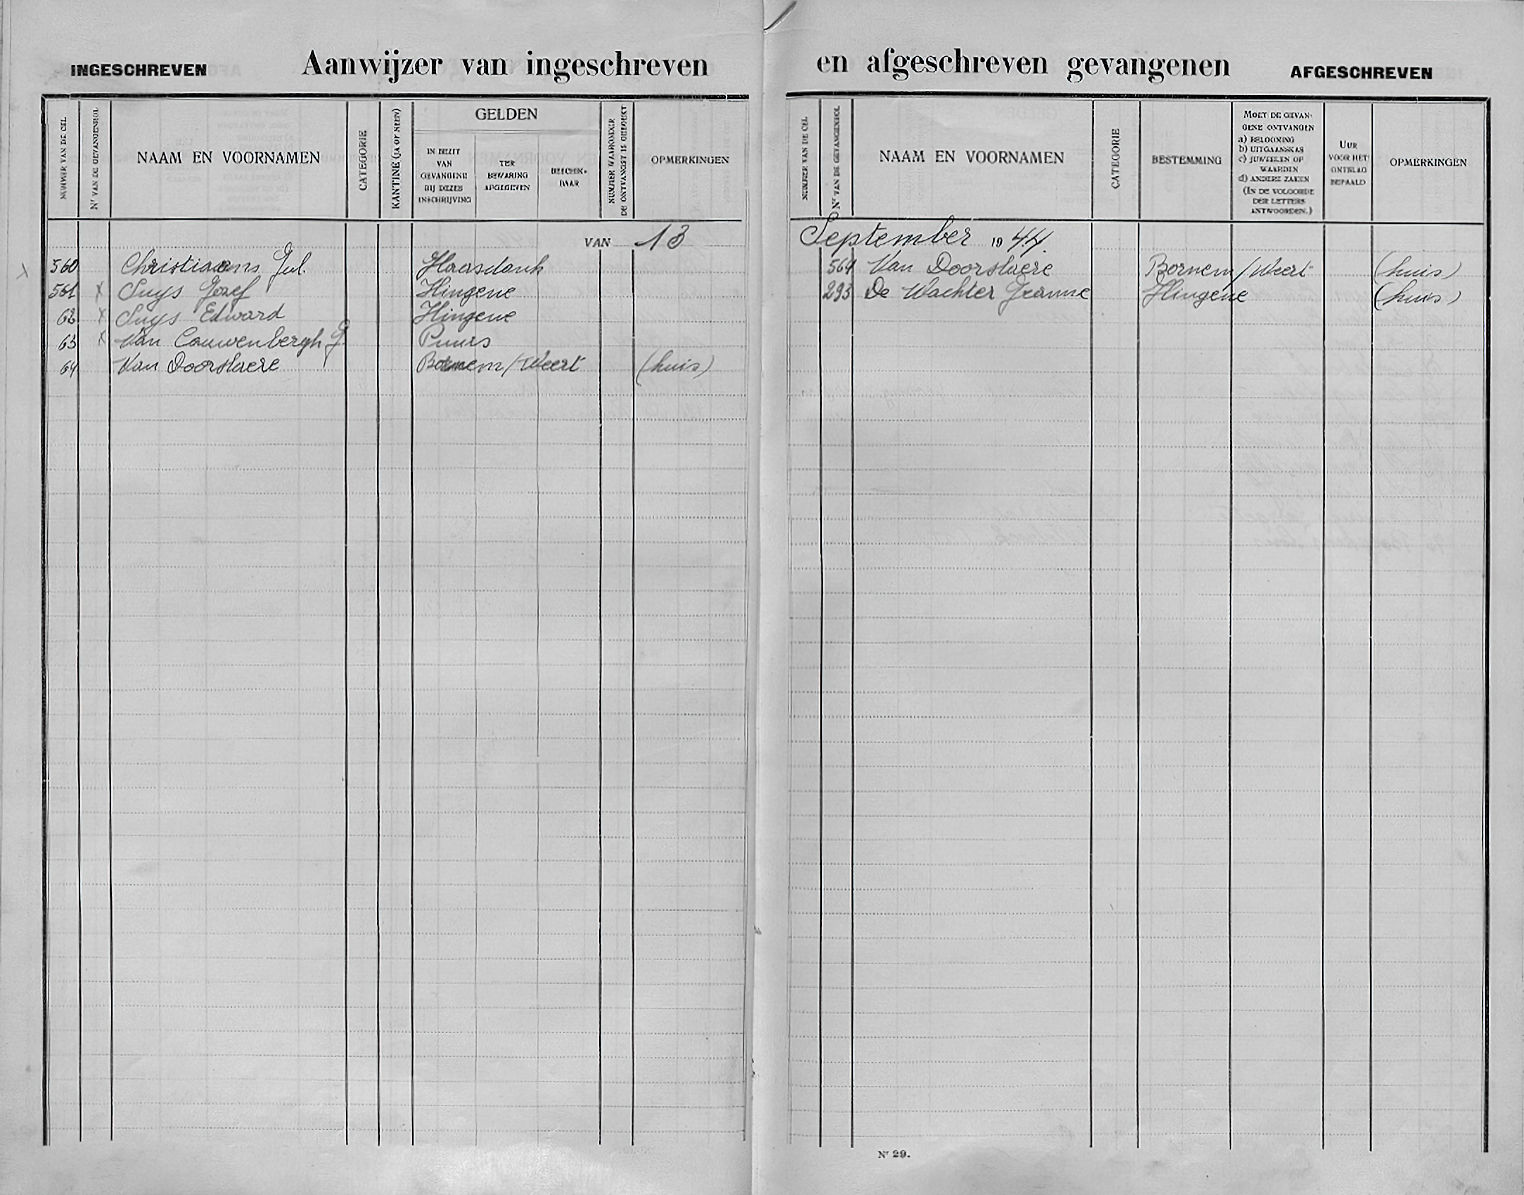 INGESCHREVEN
Aanwijzer van ingeschreven
NUMMER VAN DE CEL
Nr VAN DE GEVANGENROL
NAAM EN VOORNAMEN
CATEGORIE
KANTINE (JA OF NEEN)
GELDEN
IN BEZIT
VAN
GEVANGENE
BIJ DEZES
INSCHRIJVING
TER
BEWARING
AFGEGEVEN
BESCHIK-
BAAR
NUMMER WAARONDER
DE ONTVANGST IS GEBOEKT
OPMERKINGEN
VAN 13
560 Christiaens Jul. Haasdonk
561 x Suys Jozef Hingene
62 x Suys Edward Hingene
63 x Van Cauwenbergh J Puurs
64 Van Doorslaere Bornem/Weert (huis)
en afgeschreven gevangenen
AFGESCHREVEN
NUMMER VAN DE CEL
Nr VAN DE GEVANGENROL
NAAM EN VOORNAMEN
CATEGORIE
BESTEMMING
MOET DE GEVAN-
GENE ONTVANGEN
a) BELOONING
b) UITGAANSKAS
c) JUWEELEN OF
WAARDEN
d) ANDERE ZAKEN
(IN DE VOLGORDE
DER LETTERS
ANTWOORDEN.)
UUR
VOOR HET
ONTSLAG
BEPAALD
OPMERKINGEN
September 1944
564 Van Doorslaere Bornem/Weert (huis)
293 De Wachter Jeanne Hingene (huis)
Nr 29.